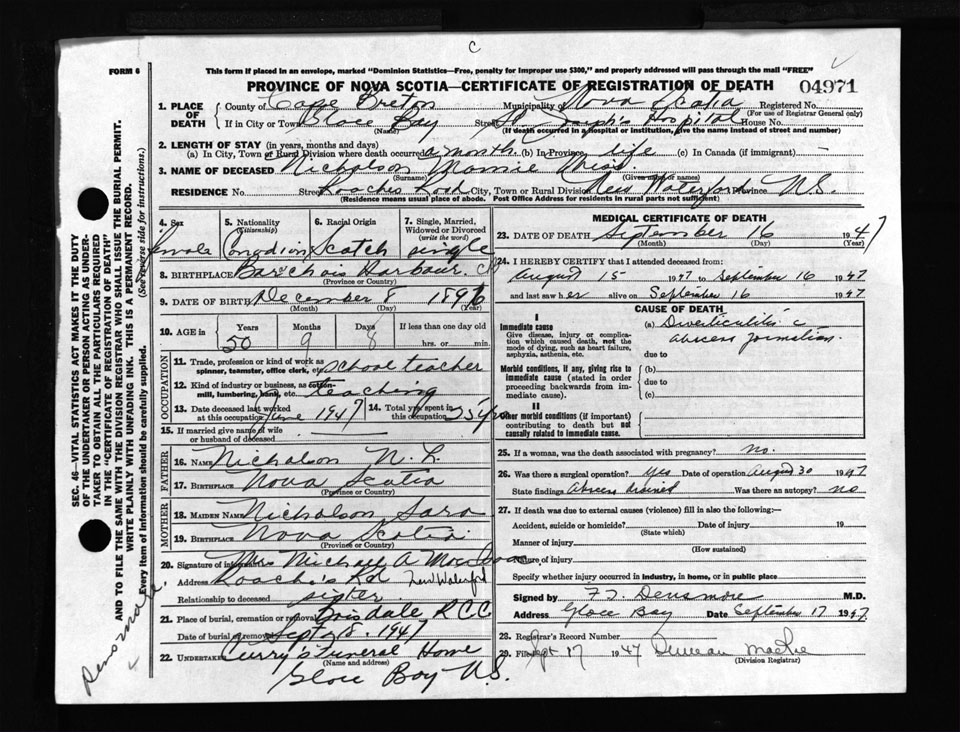 C
FORM 6
This form if placed in an envelope, marked "Dominion Statistics—Free, penalty for improper use $300," and properly addressed will pass through the mail "FREE"
PROVINCE OF NOVA SCOTIA—CERTIFICATE OF REGISTRATION OF DEATH
04971
1. PLACE OF DEATH
County of Cape Breton Municipality Nova Scotia Registered No.
(For use of Registrar General only)
If in City or Town Glace Bay Street St. Joseph's Hospital House No.
(Name) (If death occurred in a hospital or institution, give the name instead of street and number)
2. LENGTH OF STAY (in years, months and days)
(a) In City, Town or Rural Division where death occurred a month. (b) In Province life (c) In Canada (if immigrant) —
3. NAME OF DECEASED Nicholson Mamie Miss.
(Surname) (Given or names)
RESIDENCE No. Street Roaches Road City, Town or Rural Division New Waterford Province N.S.
(Residence means usual place of abode. Post Office Address for residents in rural parts not sufficient)
4. Sex female
5. Nationality (Citizenship) Canadian
6. Racial Origin Scotch
7. Single, Married, Widowed or Divorced (write the word) single
8. BIRTHPLACE Barachois Harbour. CB
(Province or Country)
9. DATE OF BIRTH December 8 1896
(Month) (Day) (Year)
10. AGE in Years 50 Months 9 Days 8 If less than one day old hrs. or min.
OCCUPATION
11. Trade, profession or kind of work as spinner, teamster, office clerk, etc. school teacher
12. Kind of industry or business, as cotton-mill, lumbering, bank, etc. teaching
13. Date deceased last worked at this occupation June 1947 14. Total yrs. spent in this occupation 25 yrs
15. If married give name of wife or husband of deceased —
FATHER
16. NAME Nicholson N. L.
17. BIRTHPLACE Nova Scotia
(Province or Country)
MOTHER
18. MAIDEN NAME Nicholson Sara
19. BIRTHPLACE Nova Scotia
(Province or Country)
20. Signature of informant Mrs Michael A
Address Roache's Rd New Waterford
Relationship to deceased sister
21. Place of burial, cremation or removal Boisdale R C C
Date of burial or removal Sept 18. 1947
22. UNDERTAKER Curry's Funeral Home
(Name and address)
Glace Bay N.S.
MEDICAL CERTIFICATE OF DEATH
23. DATE OF DEATH September 16 1947
(Month) (Day) (Year)
24. I HEREBY CERTIFY that I attended deceased from:
August 15 1947 to September 16 1947
and last saw her alive on September 16 1947
CAUSE OF DEATH
I
Immediate cause
Give disease, injury or complication which caused death, not the mode of dying, such as heart failure, asphyxia, asthenia, etc.
(a) Diverticulitis c
abscess formation.
due to
Morbid conditions, if any, giving rise to immediate cause (stated in order proceeding backwards from immediate cause).
(b)
due to
(c)
II
Other morbid conditions (if important) contributing to death but not causally related to immediate cause.
25. If a woman, was the death associated with pregnancy? no.
26. Was there a surgical operation? yes Date of operation August 30 1947
State findings Abscess drained Was there an autopsy? no
27. If death was due to external causes (violence) fill in also the following:—
Accident, suicide or homicide? Date of injury 19
(State which)
Manner of injury
(How sustained)
Nature of injury
Specify whether injury occurred in industry, in home, or in public place
Signed by Densmore M.D.
Address Glace Bay Date September 17 1947
28. Registrar's Record Number
29. Filed Sept 17 1947 Duncan MacRae
(Division Registrar)
SEC. 46—VITAL STATISTICS ACT MAKES IT THE DUTY
OF THE UNDERTAKER OR PERSON ACTING AS UNDER-
TAKER TO OBTAIN ALL THE PARTICULARS REQUIRED
IN THE "CERTIFICATE OF REGISTRATION OF DEATH"
AND TO FILE THE SAME WITH THE DIVISION REGISTRAR WHO SHALL ISSUE THE BURIAL PERMIT.
WRITE PLAINLY WITH UNFADING INK. THIS IS A PERMANENT RECORD.
Every item of Information should be carefully supplied. (See reverse side for instructions.)